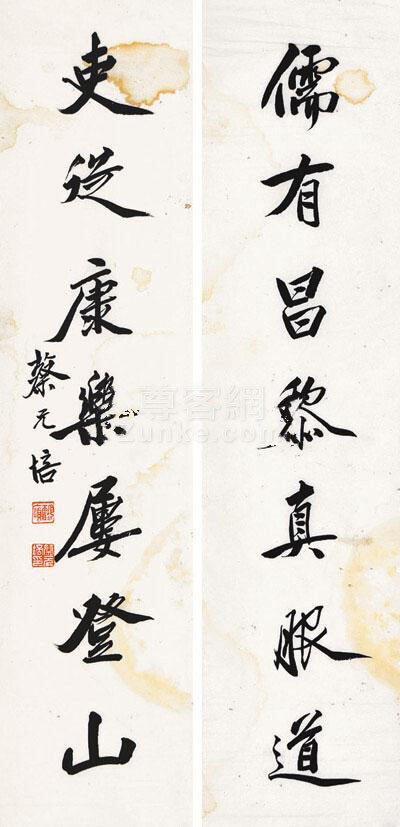 儒有昌黎真服道
吏從康樂屢登山
蔡元培
尊客網
Zunke.com